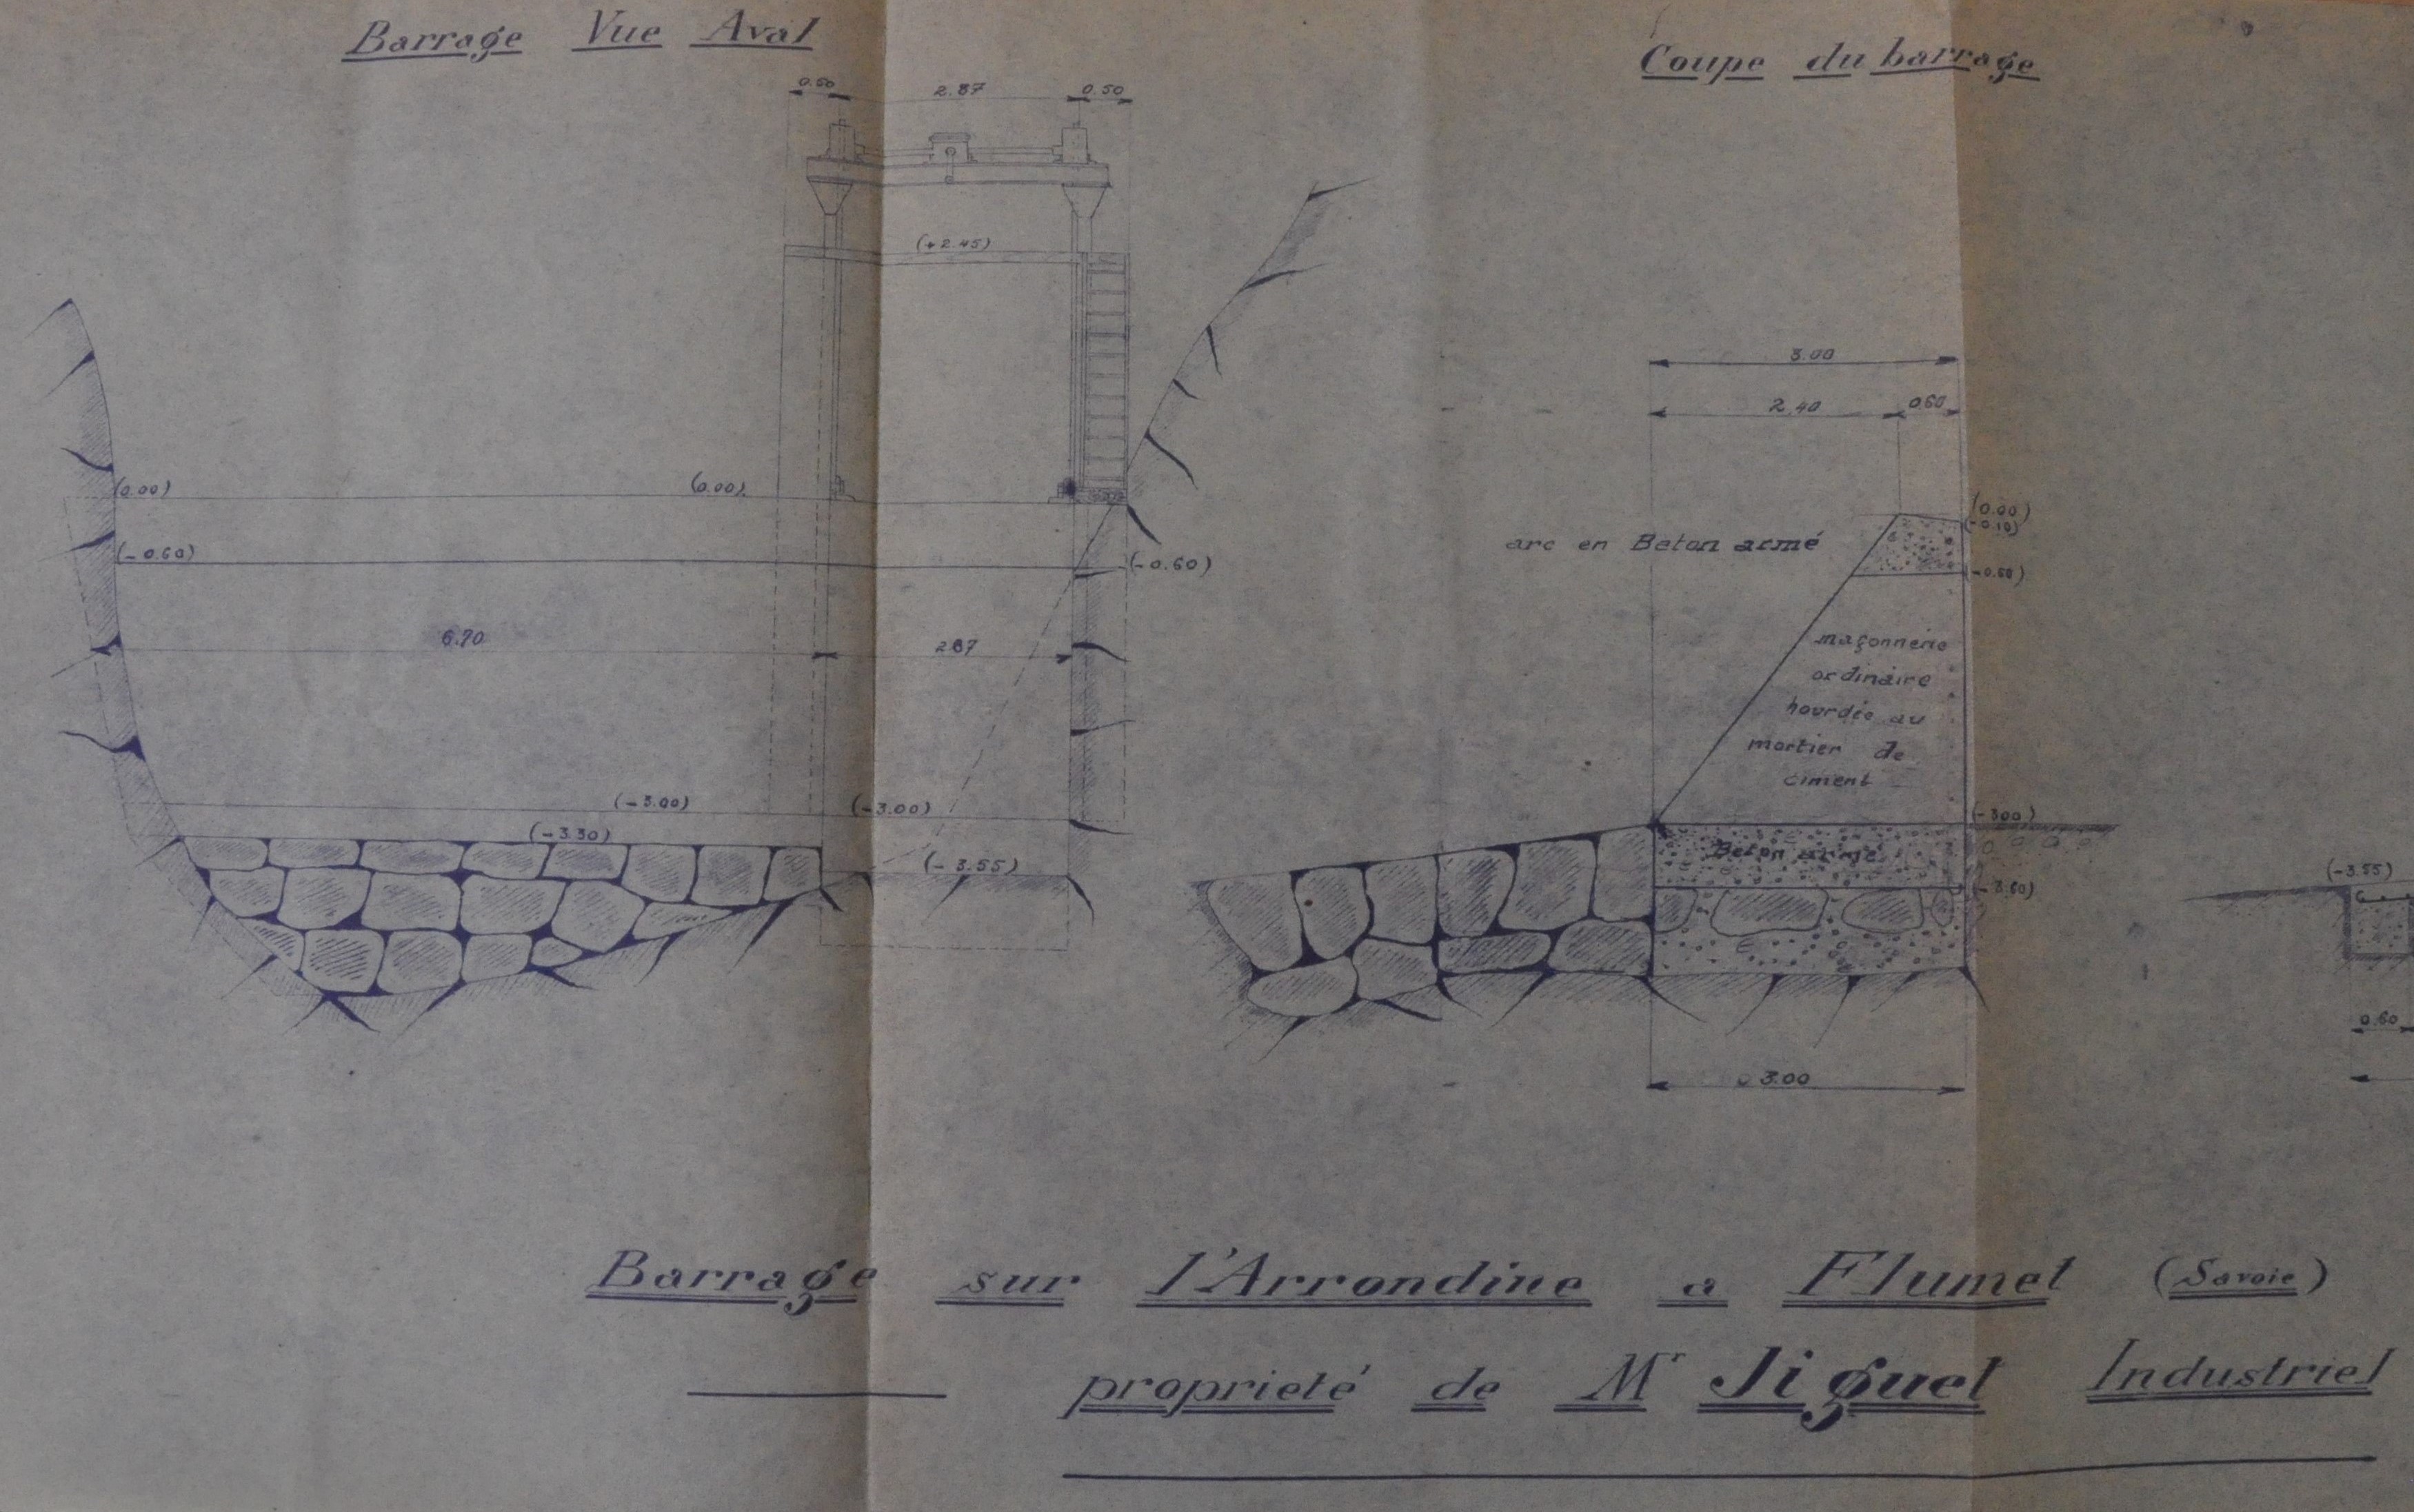 Barrage Vue Aval
0.50 2.87 0.50
(+2.45)
(0.00) (0.00)
(-0.60) (-0.60)
6.70 2.87
(-3.00) (-3.00)
(-3.30)
(-3.55)
Coupe du barrage
3.00
2.40 0.60
(0.00)
(-0.10)
arc en Beton armé
(-0.60)
maçonnerie
ordinaire
hourdée au
mortier de
ciment
(-3.00)
Beton armé
(-3.60)
3.00
(-3.55)
0.60
Barrage sur l'Arrondine a Flumet (Savoie)
proprieté de Mr Jiguet Industriel